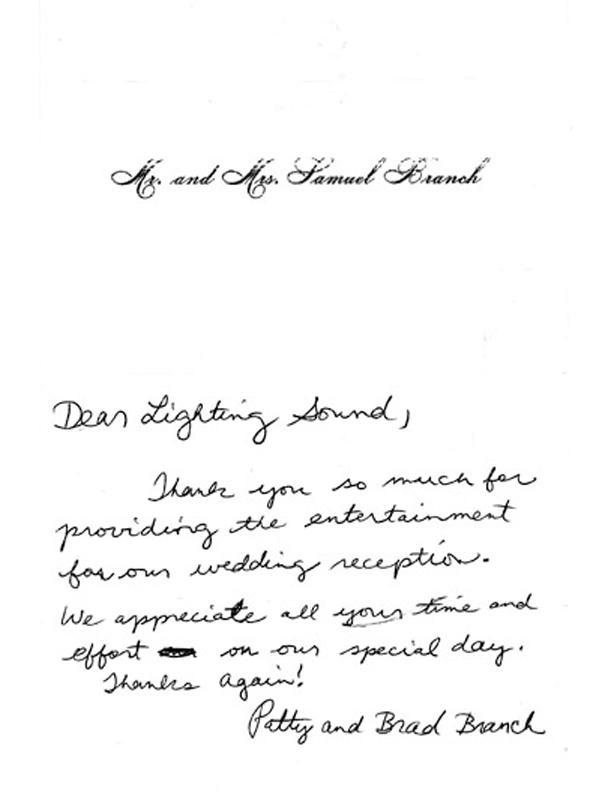 Mr. and Mrs. Samuel Branch
Dear Lighting Sound,
Thank you so much for
providing the entertainment
for our wedding reception.
We appreciate all your time and
effort on our special day.
Thanks again!
Patty and Brad Branch